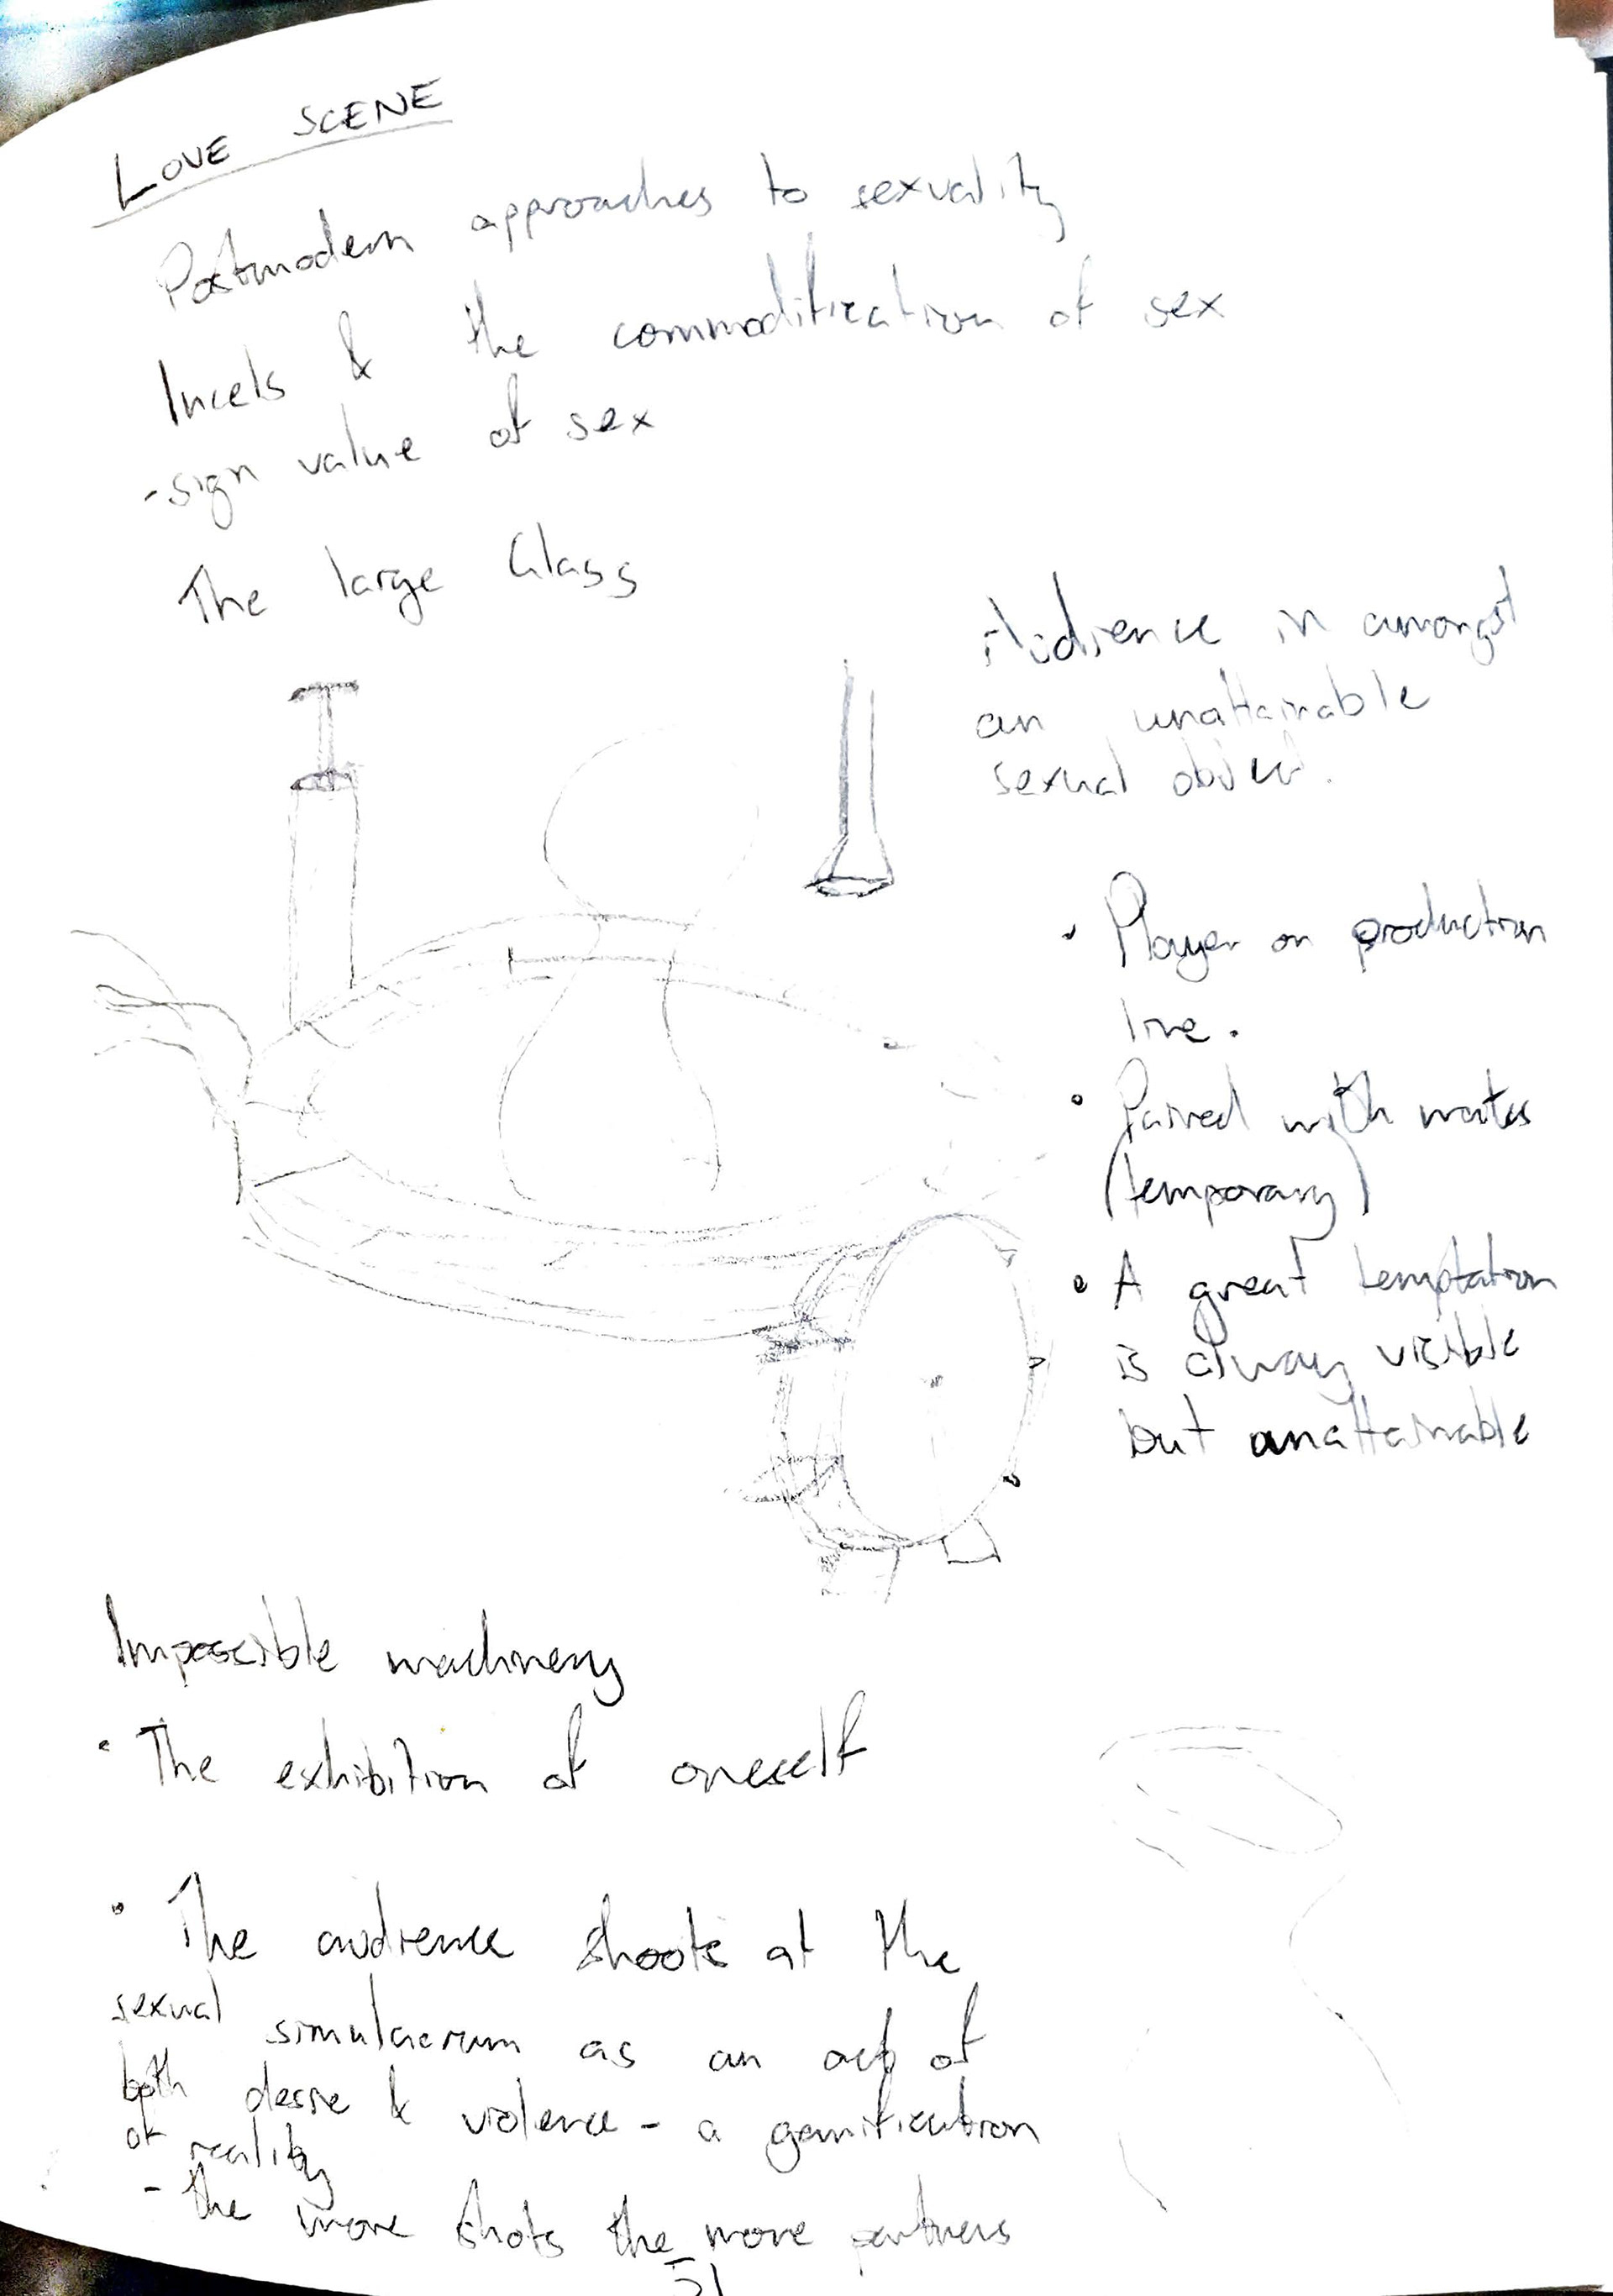 LOVE SCENE
Postmodern approaches to sexuality
Incels & the commodification of sex
-sign value of sex
The large Glass
Audience in amongst
an unattainable
sexual object.
• Player on production
line.
• Paired with mates
(temporary)
• A great temptation
is always visible
but unattainable
Impossible machinery
• The exhibition of oneself
• The audience shoots at the
sexual simulacrum as an act of
both desire & violence - a gamification
of reality
- the more shots the more partners
51